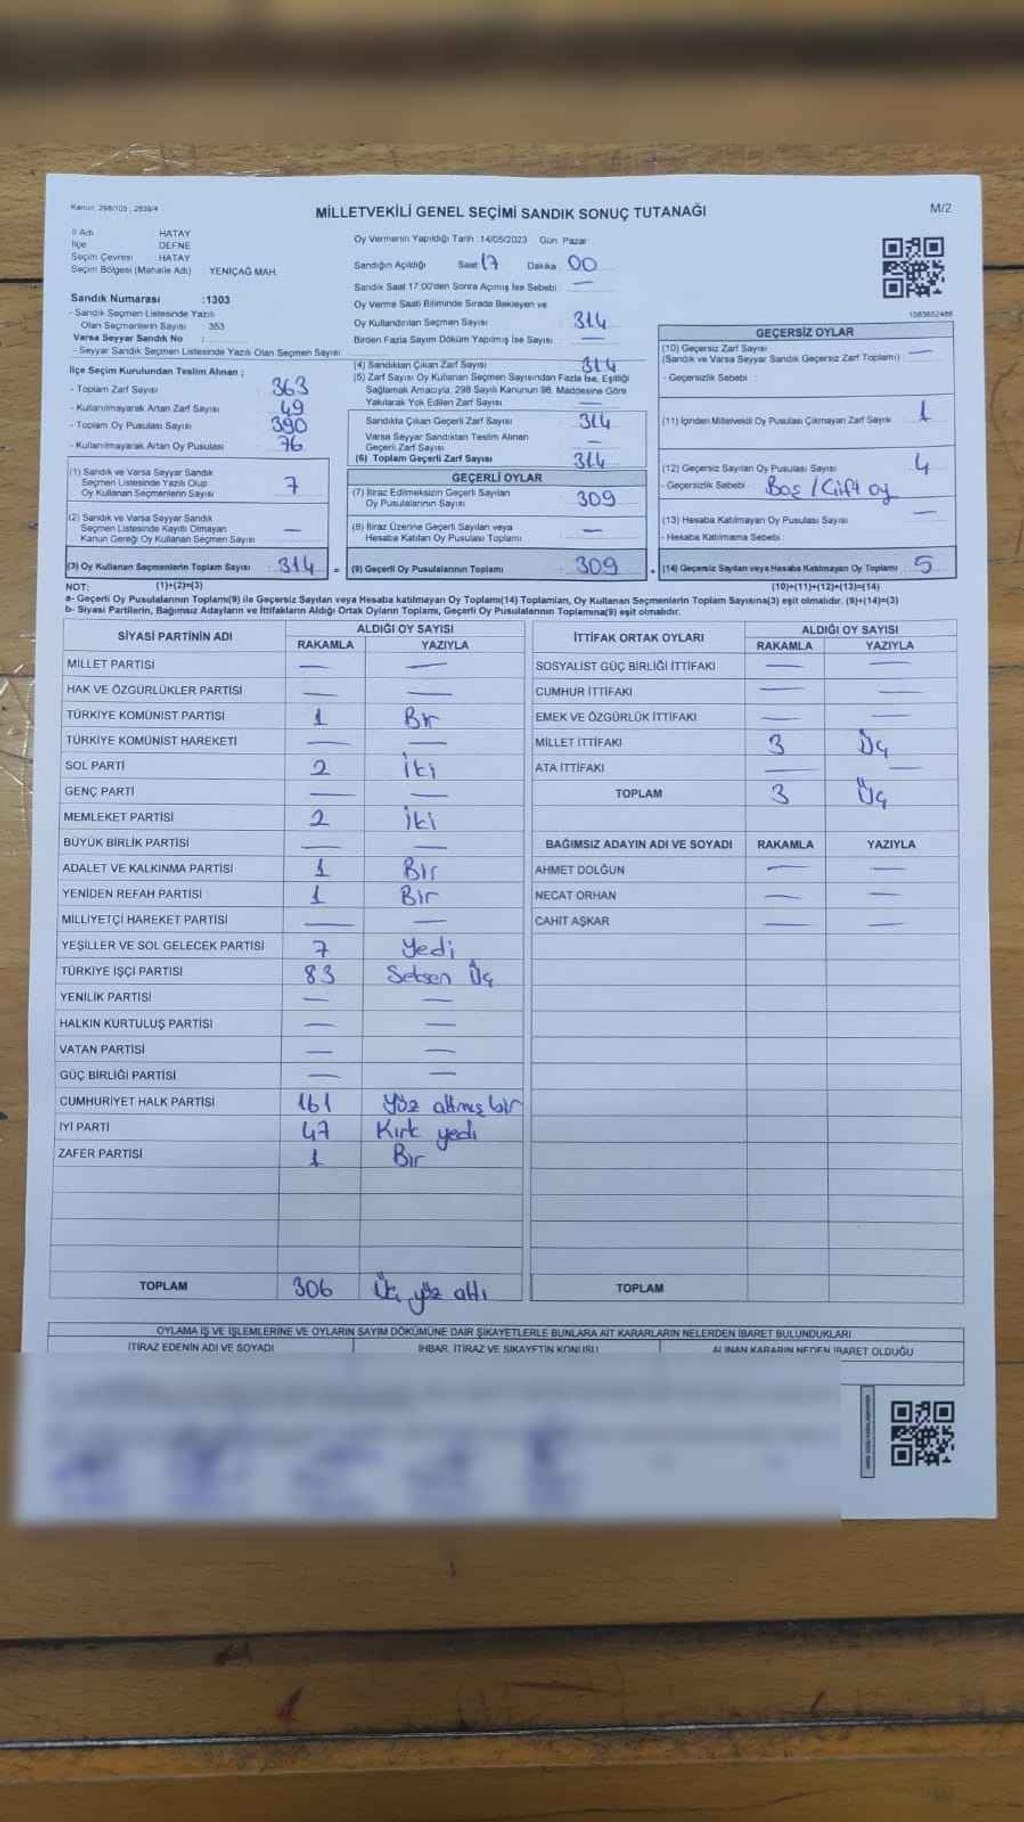 Kanun: 298/105 ; 2839/4
MİLLETVEKİLİ GENEL SEÇİMİ SANDIK SONUÇ TUTANAĞI
M/2
İl Adı HATAY
İlçe DEFNE
Seçim Çevresi HATAY
Seçim Bölgesi (Mahalle Adı) YENİÇAĞ MAH.
Oy Vermenin Yapıldığı Tarih :14/05/2023 Gün: Pazar
Sandığın Açıldığı Saat 17 Dakika 00
Sandık Saat 17:00'den Sonra Açılmış İse Sebebi : —
Sandık Numarası :1303
- Sandık Seçmen Listesinde Yazılı
Olan Seçmenlerin Sayısı 353
Varsa Seyyar Sandık No :
- Seyyar Sandık Seçmen Listesinde Yazılı Olan Seçmen Sayısı :
Oy Verme Saati Bitiminde Sırada Bekleyen ve
Oy Kullandırılan Seçmen Sayısı 314
Birden Fazla Sayım Döküm Yapılmış İse Sayısı —
İlçe Seçim Kurulundan Teslim Alınan ;
- Toplam Zarf Sayısı 363
- Kullanılmayarak Artan Zarf Sayısı 49
- Toplam Oy Pusulası Sayısı 390
- Kullanılmayarak Artan Oy Pusulası 76
(1) Sandık ve Varsa Seyyar Sandık
Seçmen Listesinde Yazılı Olup
Oy Kullanan Seçmenlerin Sayısı 7
(2) Sandık ve Varsa Seyyar Sandık
Seçmen Listesinde Kayıtlı Olmayan
Kanun Gereği Oy Kullanan Seçmen Sayısı —
(3) Oy Kullanan Seçmenlerin Toplam Sayısı 314 =
(4) Sandıktan Çıkan Zarf Sayısı 314
(5) Zarf Sayısı Oy Kullanan Seçmen Sayısından Fazla İse, Eşitliği
Sağlamak Amacıyla, 298 Sayılı Kanunun 98. Maddesine Göre
Yakılarak Yok Edilen Zarf Sayısı —
Sandıkta Çıkan Geçerli Zarf Sayısı 314
Varsa Seyyar Sandıktan Teslim Alınan
Geçerli Zarf Sayısı —
(6) Toplam Geçerli Zarf Sayısı 314
GEÇERLİ OYLAR
(7) İtiraz Edilmeksizin Geçerli Sayılan
Oy Pusulalarının Sayısı 309
(8) İtiraz Üzerine Geçerli Sayılan veya
Hesaba Katılan Oy Pusulası Toplamı —
(9) Geçerli Oy Pusulalarının Toplamı 309 +
GEÇERSİZ OYLAR
(10) Geçersiz Zarf Sayısı —
(Sandık ve Varsa Seyyar Sandık Geçersiz Zarf Toplamı)
- Geçersizlik Sebebi :
(11) İçinden Milletvekili Oy Pusulası Çıkmayan Zarf Sayısı 1
(12) Geçersiz Sayılan Oy Pusulası Sayısı 4
- Geçersizlik Sebebi Boş / Çift oy
(13) Hesaba Katılmayan Oy Pusulası Sayısı —
- Hesaba Katılmama Sebebi :
(14) Geçersiz Sayılan veya Hesaba Katılmayan Oy Toplamı 5
NOT: (1)+(2)=(3) (10)+(11)+(12)+(13)=(14)
a- Geçerli Oy Pusulalarının Toplamı(9) ile Geçersiz Sayılan veya Hesaba katılmayan Oy Toplamı(14) Toplamları, Oy Kullanan Seçmenlerin Toplam Sayısına(3) eşit olmalıdır. (9)+(14)=(3)
b- Siyasi Partilerin, Bağımsız Adayların ve İttifakların Aldığı Ortak Oyların Toplamı, Geçerli Oy Pusulalarının Toplamına(9) eşit olmalıdır.
SİYASİ PARTİNİN ADI ALDIĞI OY SAYISI
RAKAMLA YAZIYLA
MİLLET PARTİSİ — —
HAK VE ÖZGÜRLÜKLER PARTİSİ — —
TÜRKİYE KOMÜNİST PARTİSİ 1 Bir
TÜRKİYE KOMÜNİST HAREKETİ — —
SOL PARTİ 2 İki
GENÇ PARTİ — —
MEMLEKET PARTİSİ 2 İki
BÜYÜK BİRLİK PARTİSİ — —
ADALET VE KALKINMA PARTİSİ 1 Bir
YENİDEN REFAH PARTİSİ 1 Bir
MİLLİYETÇİ HAREKET PARTİSİ — —
YEŞİLLER VE SOL GELECEK PARTİSİ 7 Yedi
TÜRKİYE İŞÇİ PARTİSİ 83 Seksen Üç
YENİLİK PARTİSİ — —
HALKIN KURTULUŞ PARTİSİ — —
VATAN PARTİSİ — —
GÜÇ BİRLİĞİ PARTİSİ — —
CUMHURİYET HALK PARTİSİ 161 Yüz altmış bir
İYİ PARTİ 47 Kırk yedi
ZAFER PARTİSİ 1 Bir
TOPLAM 306 Üç yüz altı
İTTİFAK ORTAK OYLARI ALDIĞI OY SAYISI
RAKAMLA YAZIYLA
SOSYALİST GÜÇ BİRLİĞİ İTTİFAKI — —
CUMHUR İTTİFAKI — —
EMEK VE ÖZGÜRLÜK İTTİFAKI — —
MİLLET İTTİFAKI 3 Üç
ATA İTTİFAKI — —
TOPLAM 3 Üç
BAĞIMSIZ ADAYIN ADI VE SOYADI RAKAMLA YAZIYLA
AHMET DOLĞUN — —
NECAT ORHAN — —
CAHİT AŞKAR — —
TOPLAM
OYLAMA İŞ VE İŞLEMLERİNE VE OYLARIN SAYIM DÖKÜMÜNE DAİR ŞİKAYETLERLE BUNLARA AİT KARARLARIN NELERDEN İBARET BULUNDUKLARI
İTİRAZ EDENİN ADI VE SOYADI İHBAR, İTİRAZ VE ŞİKAYETİN KONUSU ALINAN KARARIN NEDEN İBARET OLDUĞU